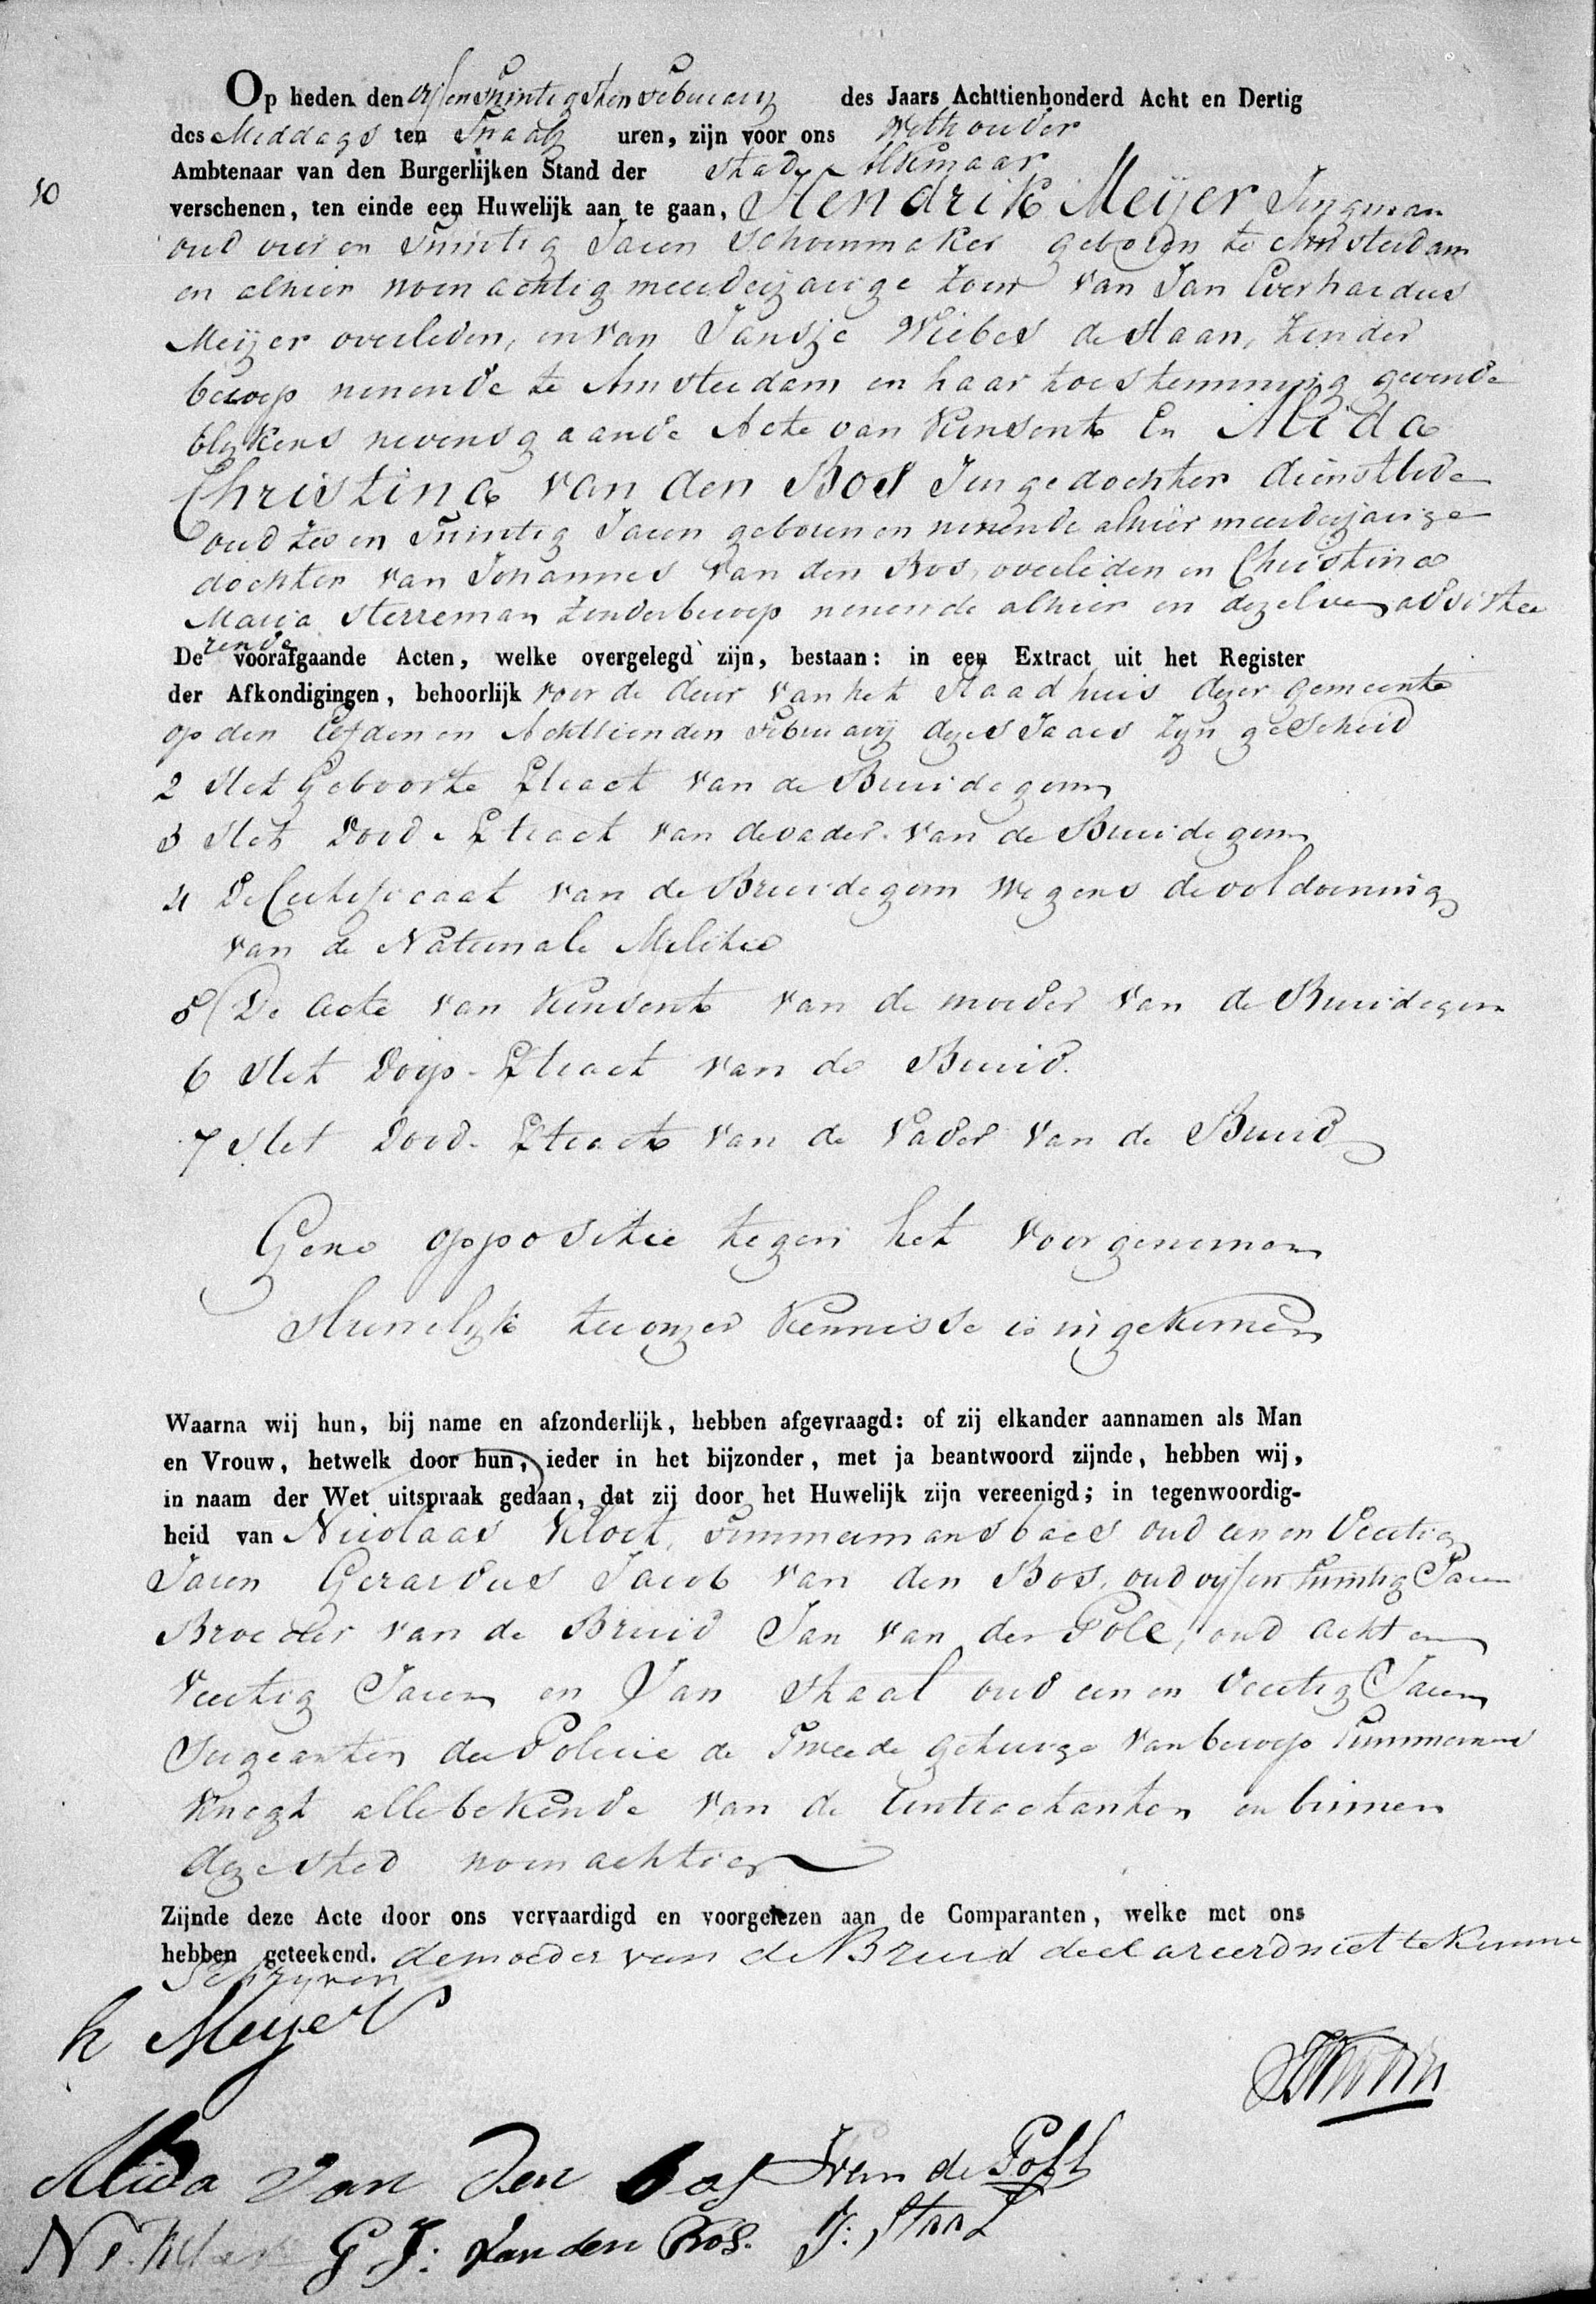 10
Op heden den vijfentwintigsten Februarij des Jaars Achttienhonderd Acht en Dertig
des Middags ten Twaalf uren, zijn voor ons Wethouder
Ambtenaar van den Burgerlijken Stand der stad Alkmaar
verschenen, ten einde een Huwelijk aan te gaan, Hendrik Meijer Jongman
oud vier en twintig Jaren Schoenmaker geboren te Amsterdam
en alhier woonachtig meerderjarige Zoon van Jan Everhardus
Meijer overleden, en van Jansje Wiebes de Haan, zonder
beroep wonende te Amsterdam en haar toestemming gevende
blijkens nevensgaande Acte van Konsent En Alida
Christina van den Bos Jongedochter dienstbode
oud zes en twintig Jaren geboren en wonende alhier meerderjarige
dochter van Johannes van den Bos, overleden en Christina
Maria Sterreman zonder beroep wonende alhier en dezelve adsistee
rende
De voorafgaande Acten, welke overgelegd zijn, bestaan: in een Extract uit het Register
der Afkondigingen, behoorlijk voor de deur van het Raadhuis dezer Gemeente
op den Elfden en Achttienden Februarij dezes Jaars zijn geschied
2 Het Geboorte Extract van de Bruidegom
3 Het Dood-Extract van de vader van de Bruidegom
4 De Certificaat van de Bruidegom wegens de voldoening
van de Nationale Militie
5 De Acte van Konsent van de moeder van de Bruidegom
6 Het Doop-Extract van de Bruid.
7 Het Dood-Extract van de Vader van de Bruid
Gene oppositie tegen het voorgenomen
Huwelijk ter onzer Kennisse is ingekomen
Waarna wij hun, bij name en afzonderlijk, hebben afgevraagd: of zij elkander aannamen als Man
en Vrouw, hetwelk door hun, ieder in het bijzonder, met ja beantwoord zijnde, hebben wij,
in naam der Wet uitspraak gedaan, dat zij door het Huwelijk zijn vereenigd; in tegenwoordig-
heid van Nicolaas Kloet, Timmermansbaas oud een en Veertig
Jaren Gerardus Jacob van den Bos, oud vijf en twintig Jaren
Broeder van de Bruid Jan van der Pole, oud Acht en
Veertig Jaren en Jan Staal oud een en Veertig Jaren
Sergeanten der Policie de Tweede getuige van beroep Timmermans
knegt alle bekende van de Contractanten en binnen
deze stad woonachtig
Zijnde deze Acte door ons vervaardigd en voorgelezen aan de Comparanten, welke met ons
hebben geteekend. de moeder van de Bruid declareerd niet te kunnen
Schrijven
h Meyer
Alida van den bos J van de Poll
G J: van den Bos. J: Staal